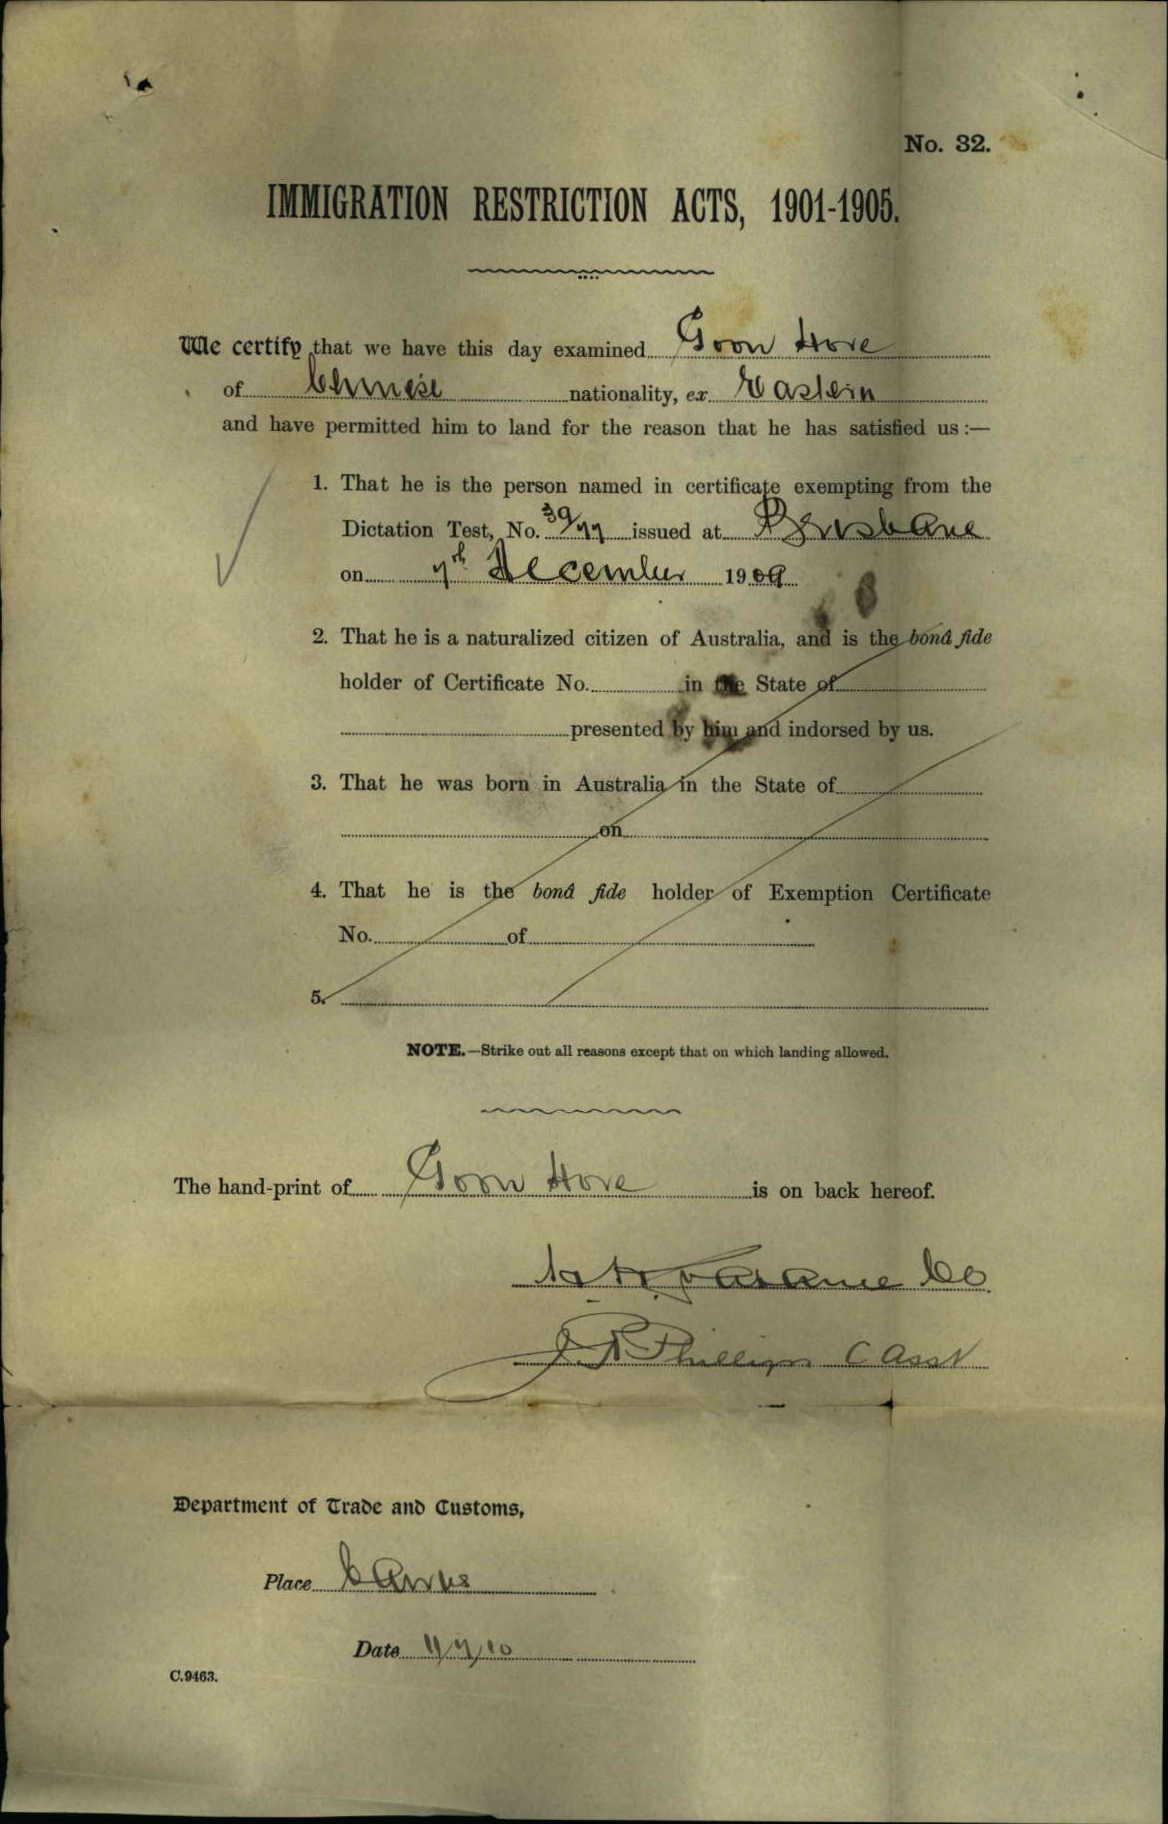 No. 32.
IMMIGRATION RESTRICTION ACTS, 1901-1905.
We certify that we have this day examined Goon Hove
of Chinese nationality, ex Eastern
and have permitted him to land for the reason that he has satisfied us :—
1. That he is the person named in certificate exempting from the
Dictation Test, No. 39/77 issued at Brisbane
on 7th December 1909
2. That he is a naturalized citizen of Australia, and is the bonâ fide
holder of Certificate No. in the State of
presented by him and indorsed by us.
3. That he was born in Australia in the State of
on
4. That he is the bonâ fide holder of Exemption Certificate
No. of
5.
NOTE.—Strike out all reasons except that on which landing allowed.
The hand-print of Goon Hove is on back hereof.
Co
Phillips C Asst
Department of Trade and Customs,
Place Cairns
Date 11/7/10
C.9463.